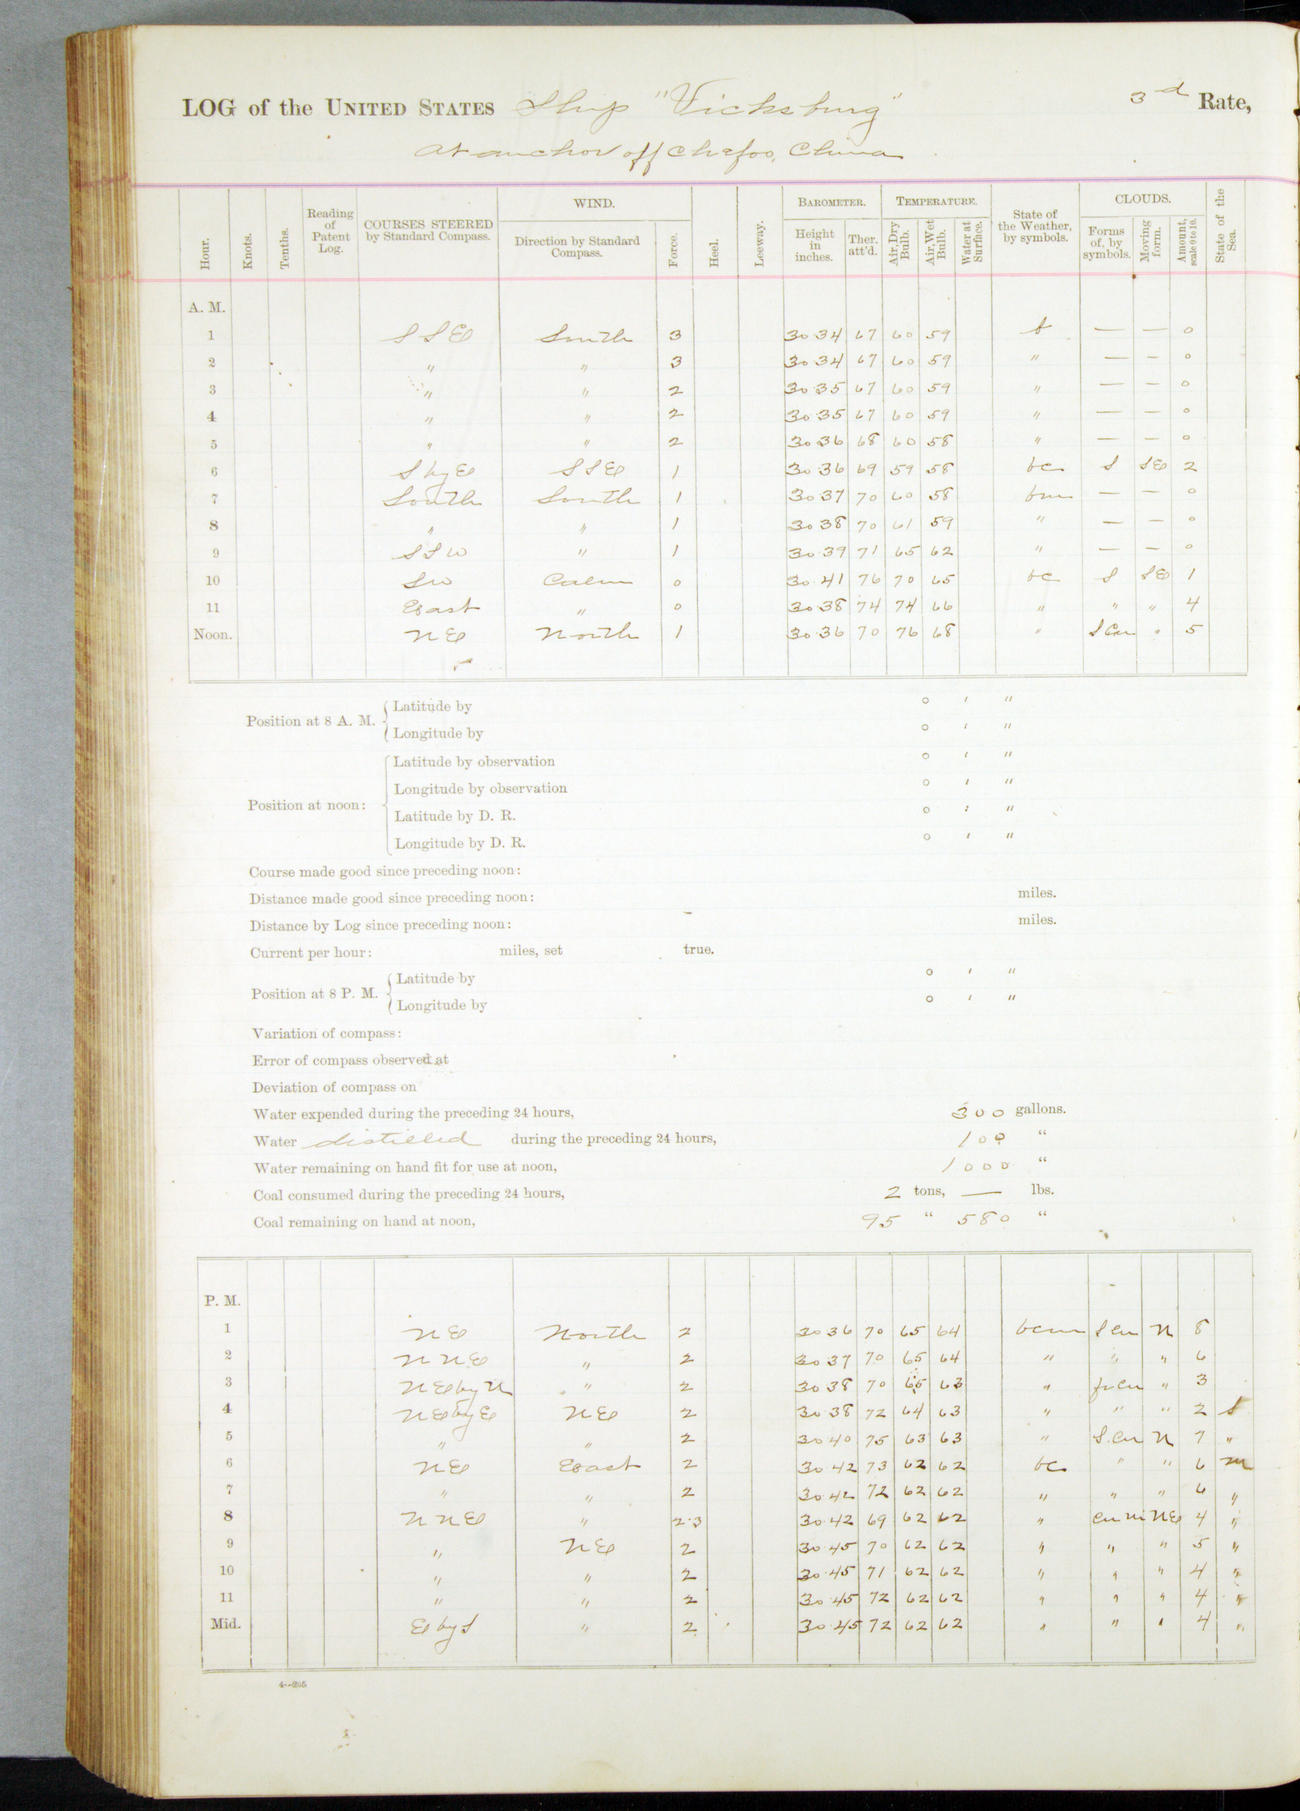 LOG of the UNITED STATES Ship "Vicksburg" 3d Rate,
at anchor off Chefoo, China
Hour. Knots. Tenths. Reading of Patent Log. COURSES STEERED by Standard Compass. WIND. Direction by Standard Compass. Force. Heel. Leeway. BAROMETER. Height in inches. Ther. att'd. TEMPERATURE. Air, Dry Bulb. Air, Wet Bulb. Water at Surface. State of the Weather, by symbols. CLOUDS. Forms of, by symbols. Moving form. Amount, scale 0 to 10. State of the Sea.
A. M.
1 SSE South 3 30.34 67 60 59 b — — 0
2 " " 3 30.34 67 60 59 " — — 0
3 " " 2 30.35 67 60 59 " — — 0
4 " " 2 30.35 67 60 59 " — — 0
5 " " 2 30.36 68 60 58 " — — 0
6 S by E SSE 1 30.36 69 59 58 bc S SE 2
7 South South 1 30.37 70 60 58 bm — — 0
8 " " 1 30.38 70 61 59 " — — 0
9 SSW " 1 30.39 71 65 62 " — — 0
10 SW Calm 0 30.41 76 70 65 bc S SE 1
11 East " 0 30.38 74 74 66 " " " 4
Noon. NE North 1 30.36 70 76 68 " S Cu " 5
Position at 8 A. M. Latitude by ° ' "
Longitude by ° ' "
Position at noon: Latitude by observation ° ' "
Longitude by observation ° ' "
Latitude by D. R. ° ' "
Longitude by D. R. ° ' "
Course made good since preceding noon:
Distance made good since preceding noon: miles.
Distance by Log since preceding noon: miles.
Current per hour: miles, set true.
Position at 8 P. M. Latitude by ° ' "
Longitude by ° ' "
Variation of compass:
Error of compass observed at
Deviation of compass on
Water expended during the preceding 24 hours, 300 gallons.
Water distilled during the preceding 24 hours, 100 "
Water remaining on hand fit for use at noon, 1000 "
Coal consumed during the preceding 24 hours, 2 tons, — lbs.
Coal remaining on hand at noon, 95 " 580 "
P. M.
1 NE North 2 30 36 70 65 64 bcm S cu N 8
2 NNE " 2 30 37 70 65 64 " " " 6
3 NE by N " 2 30 38 70 65 63 " fr cu " 3
4 NE by E NE 2 30 38 72 64 63 " " " 2 S
5 " " 2 30 40 75 63 63 " S.cu N 7 "
6 NE East 2 30.42 73 62 62 bc " " 6 m
7 " " 2 30.42 72 62 62 " " " 6 "
8 NNE " 2.3 30.42 69 62 62 " cu ni NE 4 "
9 " NE 2 30.45 70 62 62 " " " 5 "
10 " " 2 30.45 71 62 62 " " " 4 "
11 " " 2 30.45 72 62 62 " " " 4 "
Mid. E by S " 2 30.45 72 62 62 " " " 4 "
4--205